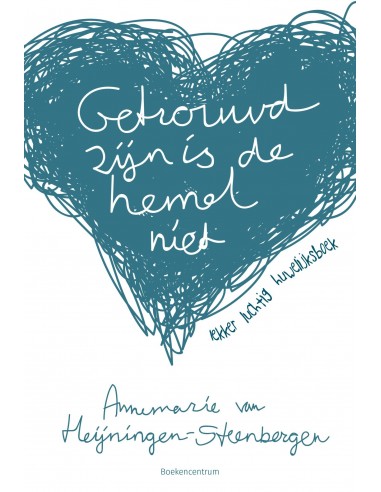 Getrouwd
zijn is de
hemel
niet
lekker luchtig huwelijksboek
Annemarie van
Heijningen-Steenbergen
Boekencentrum